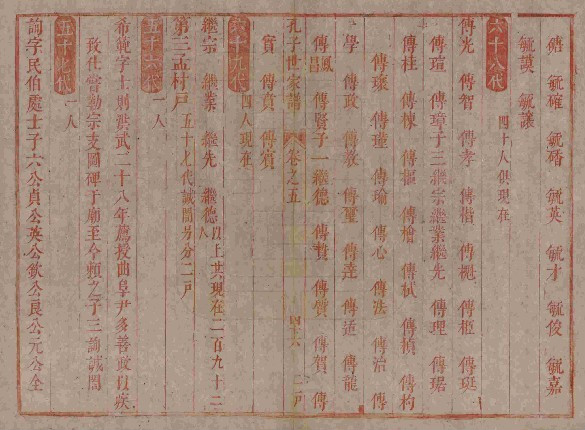 毓確 毓碏 毓英 毓才 毓俊 毓嘉
毓謨 毓讓
六十八代 四十八俱現在
傳光 傳智 傳孝 傳楷 傳樾 傳框 傳珽
傳瑄 傳璋子三繼宗繼業繼先 傳理 傳琚
傳桂 傳棟 傳樞 傳檜 傳軾 傳楨 傳杓
傳瓌 傳瑾 傳瑜 傳心 傳法 傳治 傳
學 傳政 傳敎 傳璽 傳達 傳道 傳龍
傳鳳 傳昌 傳賢子一繼德 傳贊 傳質 傳賀 傳
實 傳貴 傳賓
孔子世家譜 卷之五 四十六 二戶
六十九代 四人現在
繼宗 繼業 繼先 繼德 以上共現在二百九十三人
第三孟村戶 五十七代誠閭另分二戶
五十六代 一人
希範字士則洪武二十八年薦授曲阜尹多善政以疾
致仕嘗勒宗支圖碑于廟至今賴之子三詢誠閭
五十七代 一人
詢字民伯處士子六公貞公英公欽公良公元公全